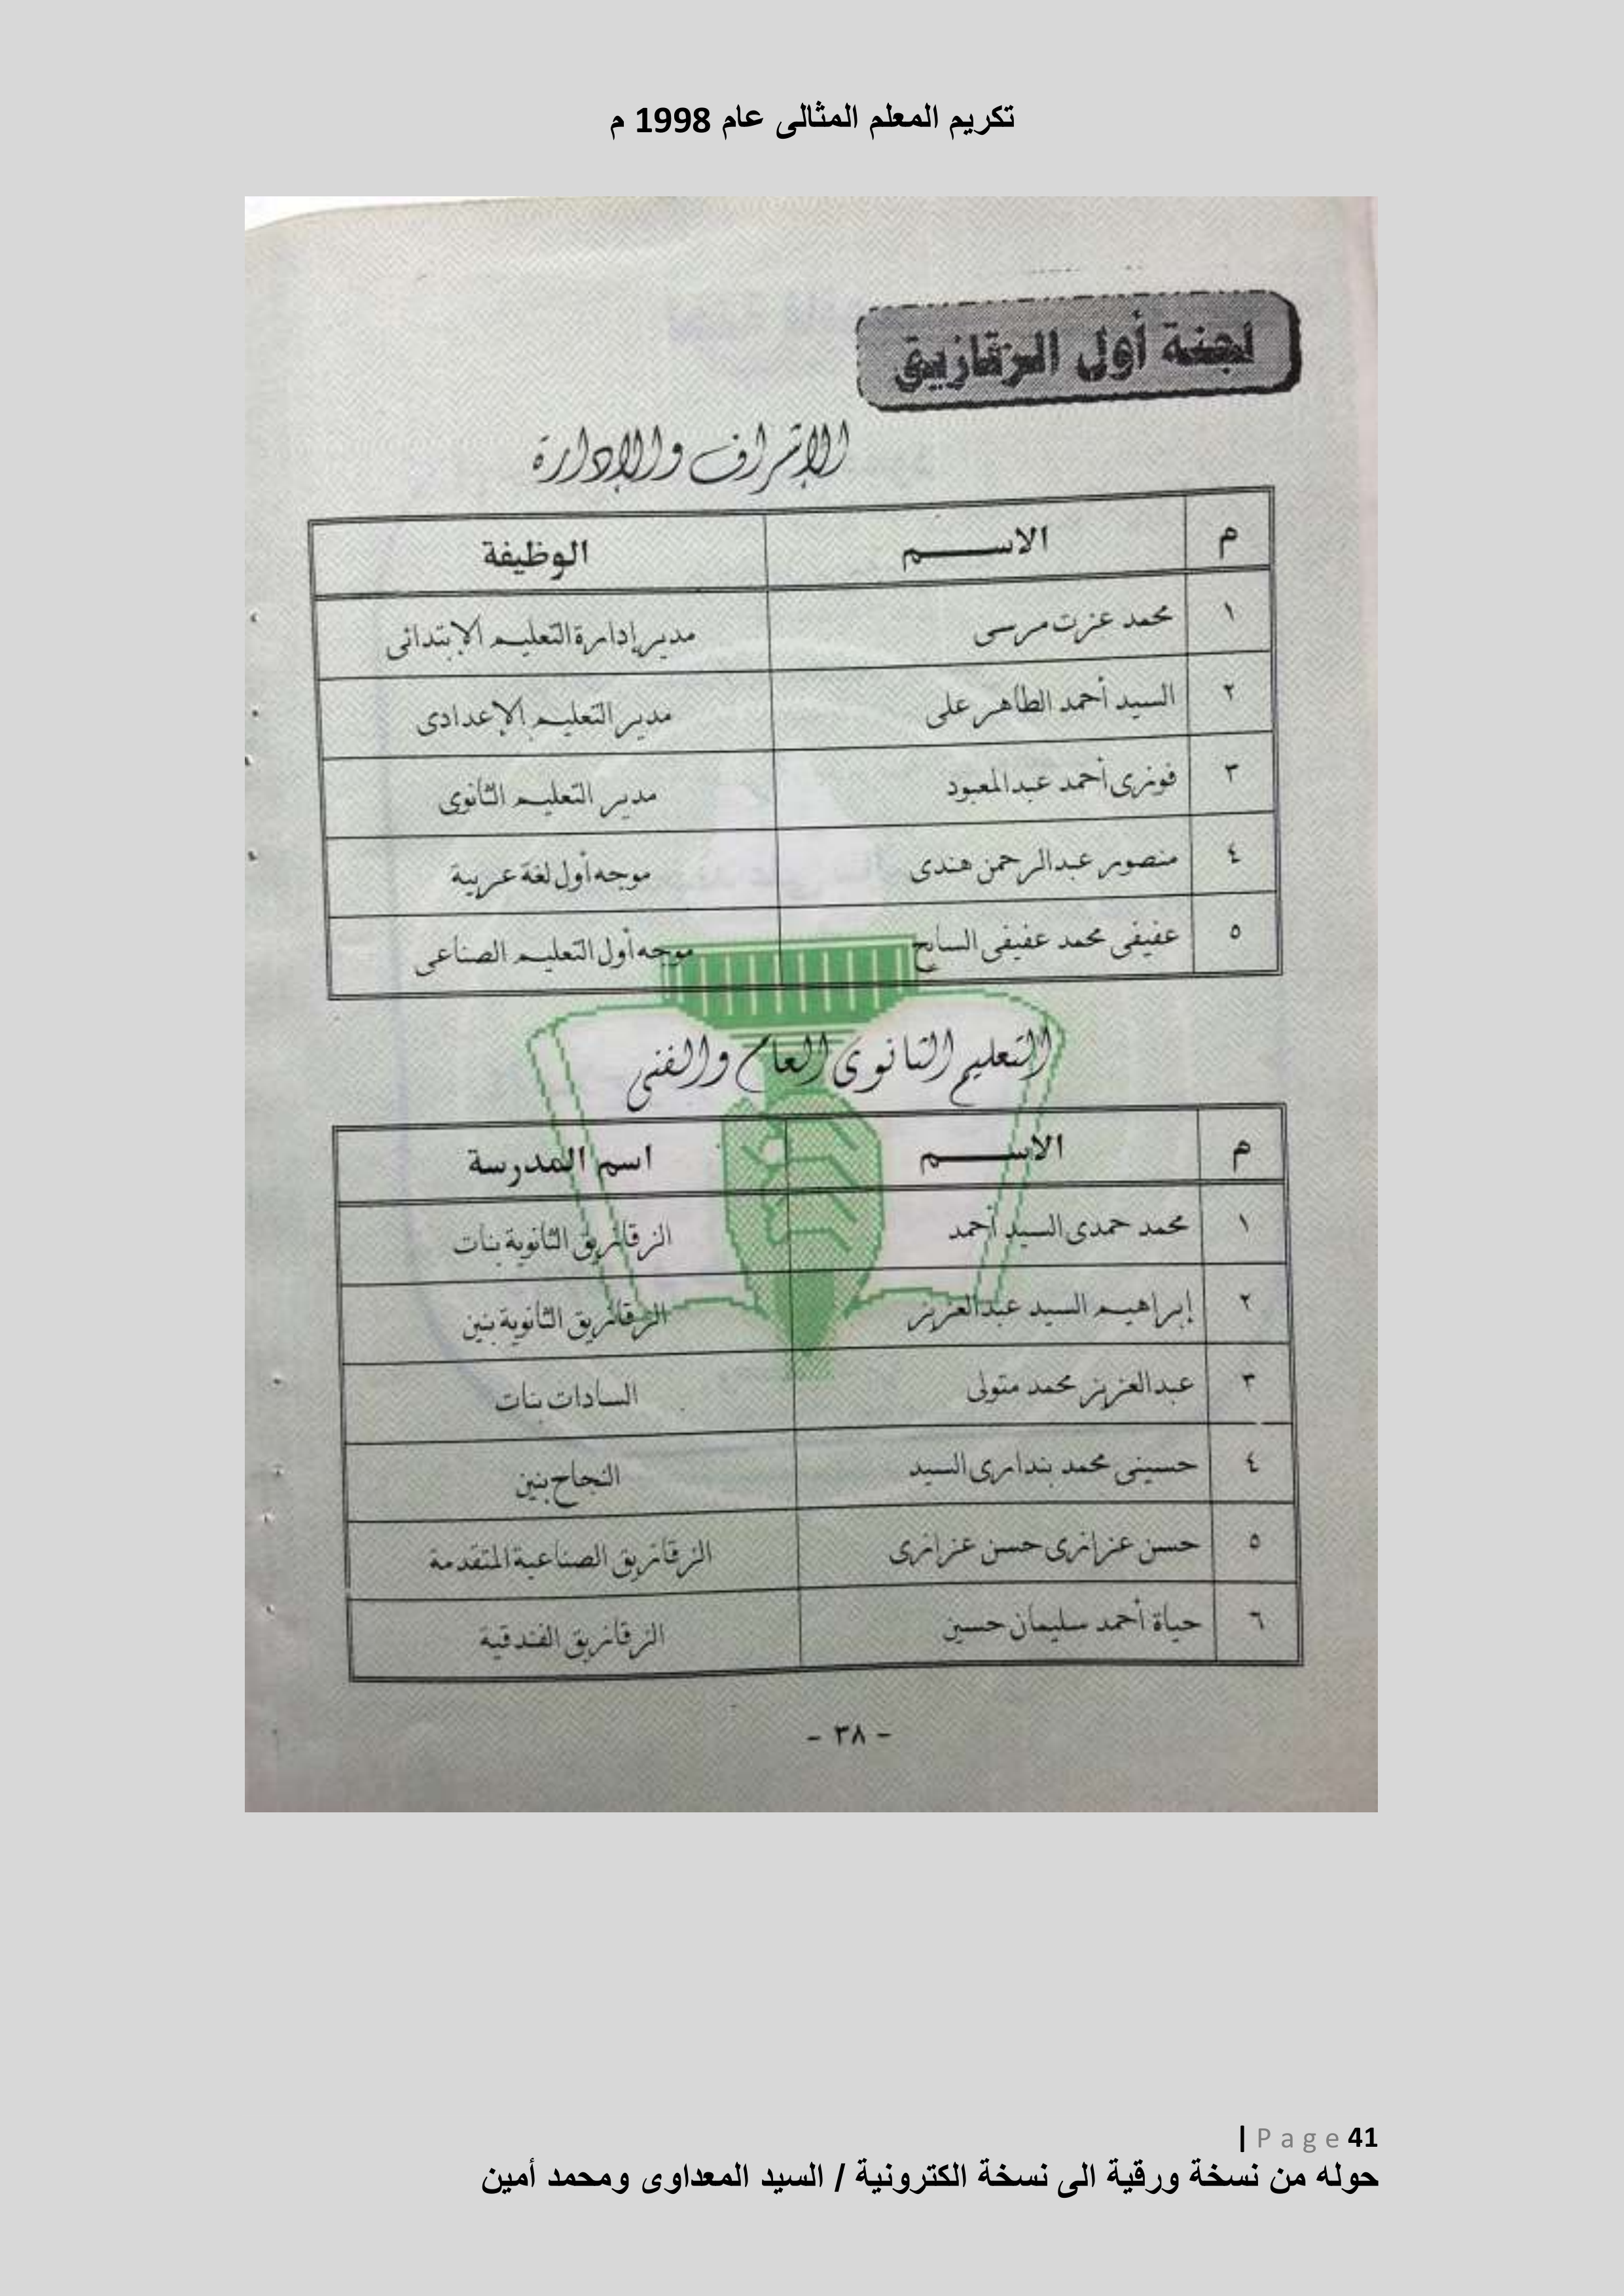 تكريم المعلم المثالى عام 1998 م
لجنة أول الزقازيق
الإشراف والإدارة
م الاسم الوظيفة
١ محمد عزت مرسى مدير إدارة التعليم الإبتدائى
٢ السيد أحمد الطاهر على مدير التعليم الإعدادى
٣ فوزى أحمد عبدالمعبود مدير التعليم الثانوى
٤ منصور عبدالرحمن هندى موجه أول لغة عربية
٥ عفيفى محمد عفيفى السايح موجه أول التعليم الصناعى
التعليم الثانوى العام والفنى
م الاسم اسم المدرسة
١ محمد حمدى السيد أحمد الزقازيق الثانوية بنات
٢ إبراهيم السيد عبدالعزيز الزقازيق الثانوية بنين
٣ عبدالعزيز محمد متولى السادات بنات
٤ حسينى محمد بندارى السيد النجاح بنين
٥ حسن عزازى حسن عزازى الزقازيق الصناعية المتقدمة
٦ حياة أحمد سليمان حسين الزقازيق الفندقية
- ٣٨ -
| Page 41
حوله من نسخة ورقية الى نسخة الكترونية / السيد المعداوى ومحمد أمين